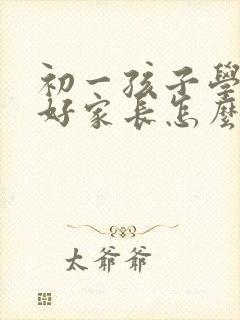 初一孩子學
好家長怎麼
太爺爺